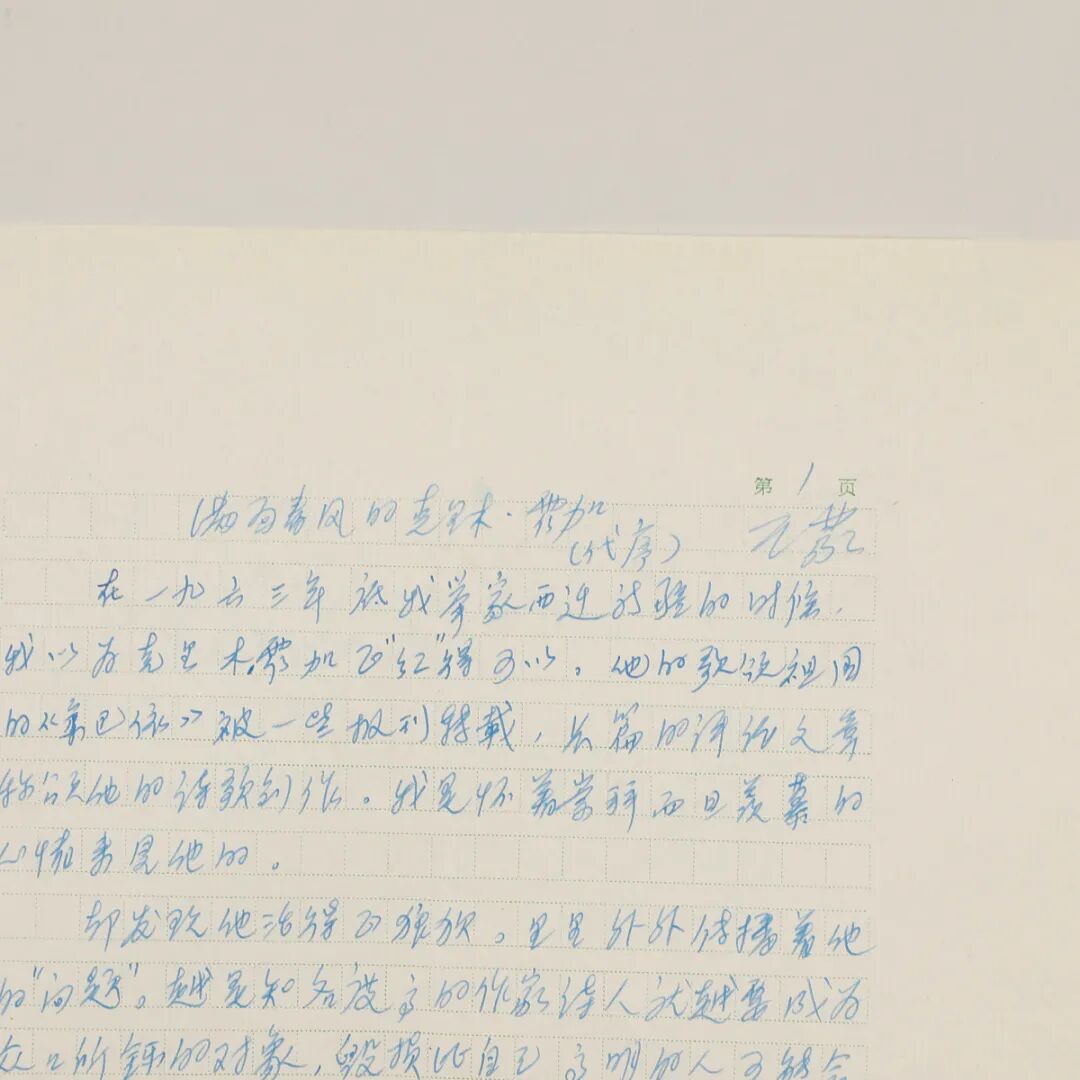 第1页
满面春风的克里木·霍加
(代序) 王蒙
在一九六三年底我举家西迁新疆的时候，
我以为克里木霍加正“红”得可以。他的歌颂祖国
的《柔巴依》被一些报刊转载，长篇的评论文章
称颂他的诗歌创作。我是怀着崇拜而且羡慕的
心情来见他的。
却发现他活得正狼狈。里里外外传播着他
的“问题”。越是知名度高的作家诗人就越要成为
众口所铄的对象，毁损比自己高明的人可能会